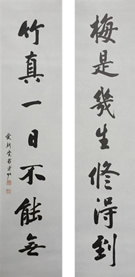 梅是幾生修得到
竹真一日不能無